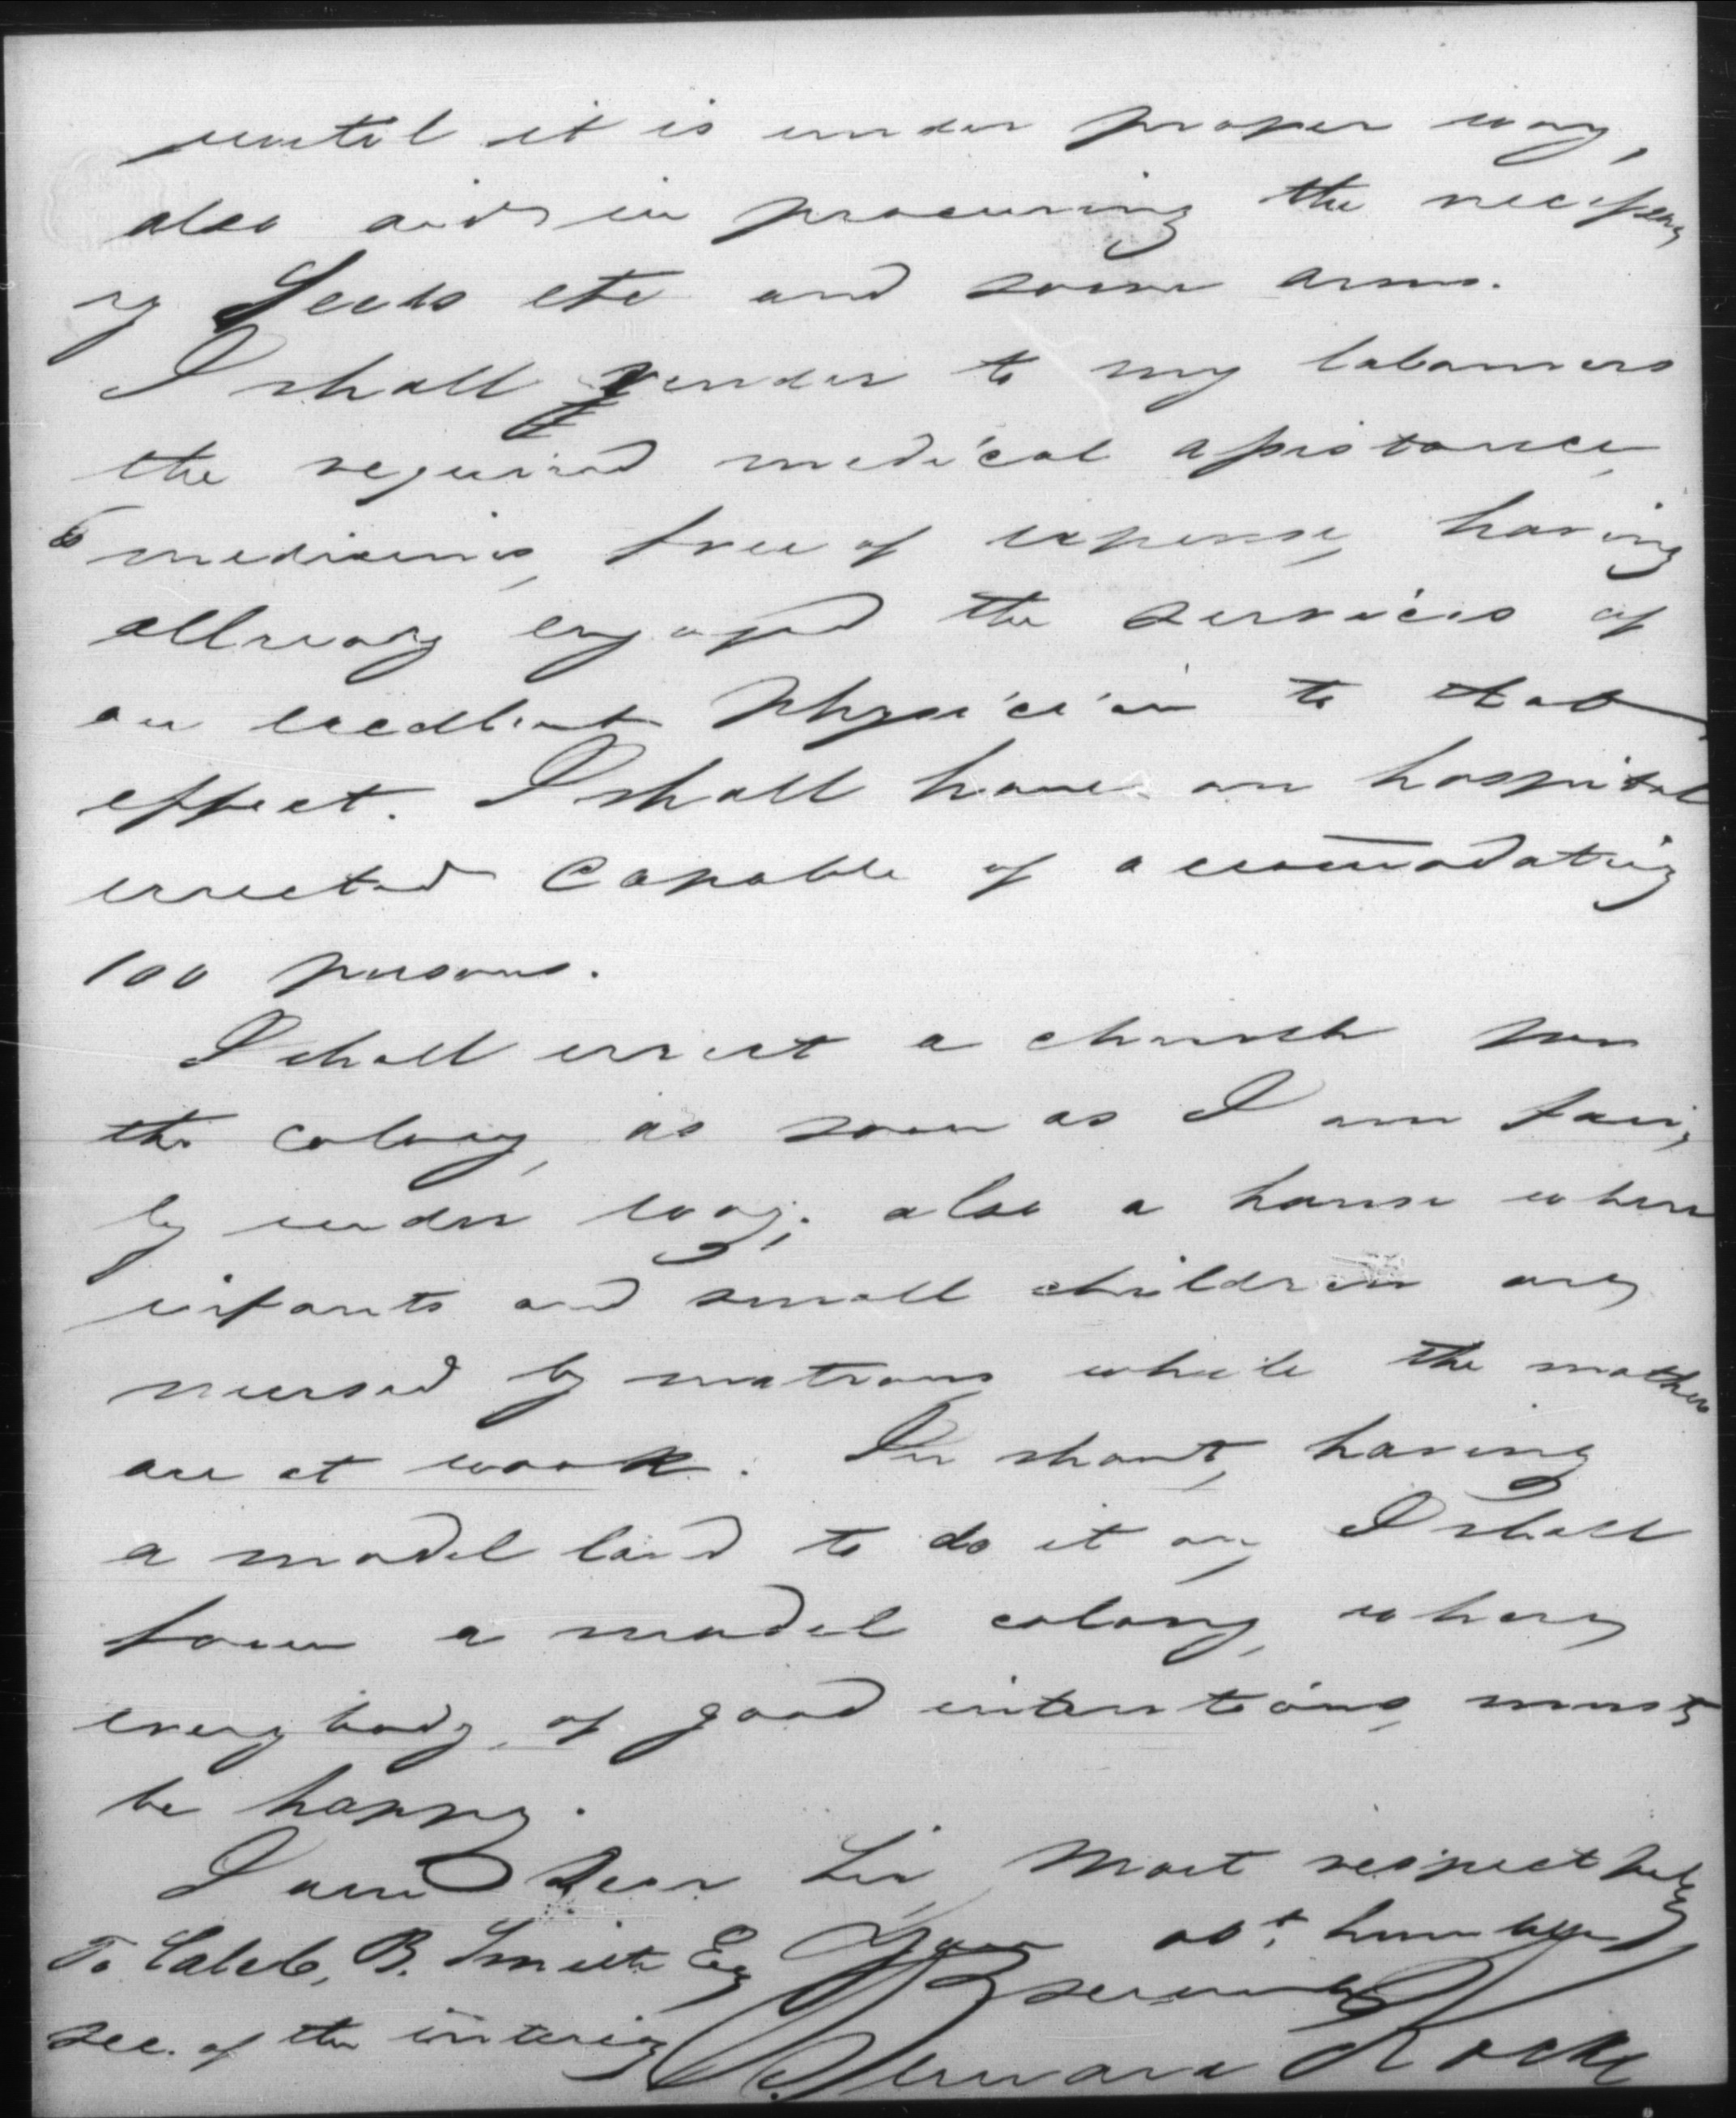 until it is under proper way,
also aid in procuring the necessa,
ry Seeds etc and some arms.
I shall render to my labourers
the required medical assistance
& medicines, free of expense, having
allready engaged the services of
an excellent Physician to that
effect. I shall have an hospital
errected Capable of accomodating
100 persons.
I shall errect a church on
the colony, as soon as I am fair,
ly under way; also a house where
infants and small children are
nursed by matrons while the mothers
are at work. In short, having
a model land to do it on, I shall
form a model colony, where
everybody, of good intentions, must
be happy.
I am Dear Sir, Most respectfully
To Caleb, B. Smith Esq Your obt. humble
servant
Sec. of the interior Bernard Kock